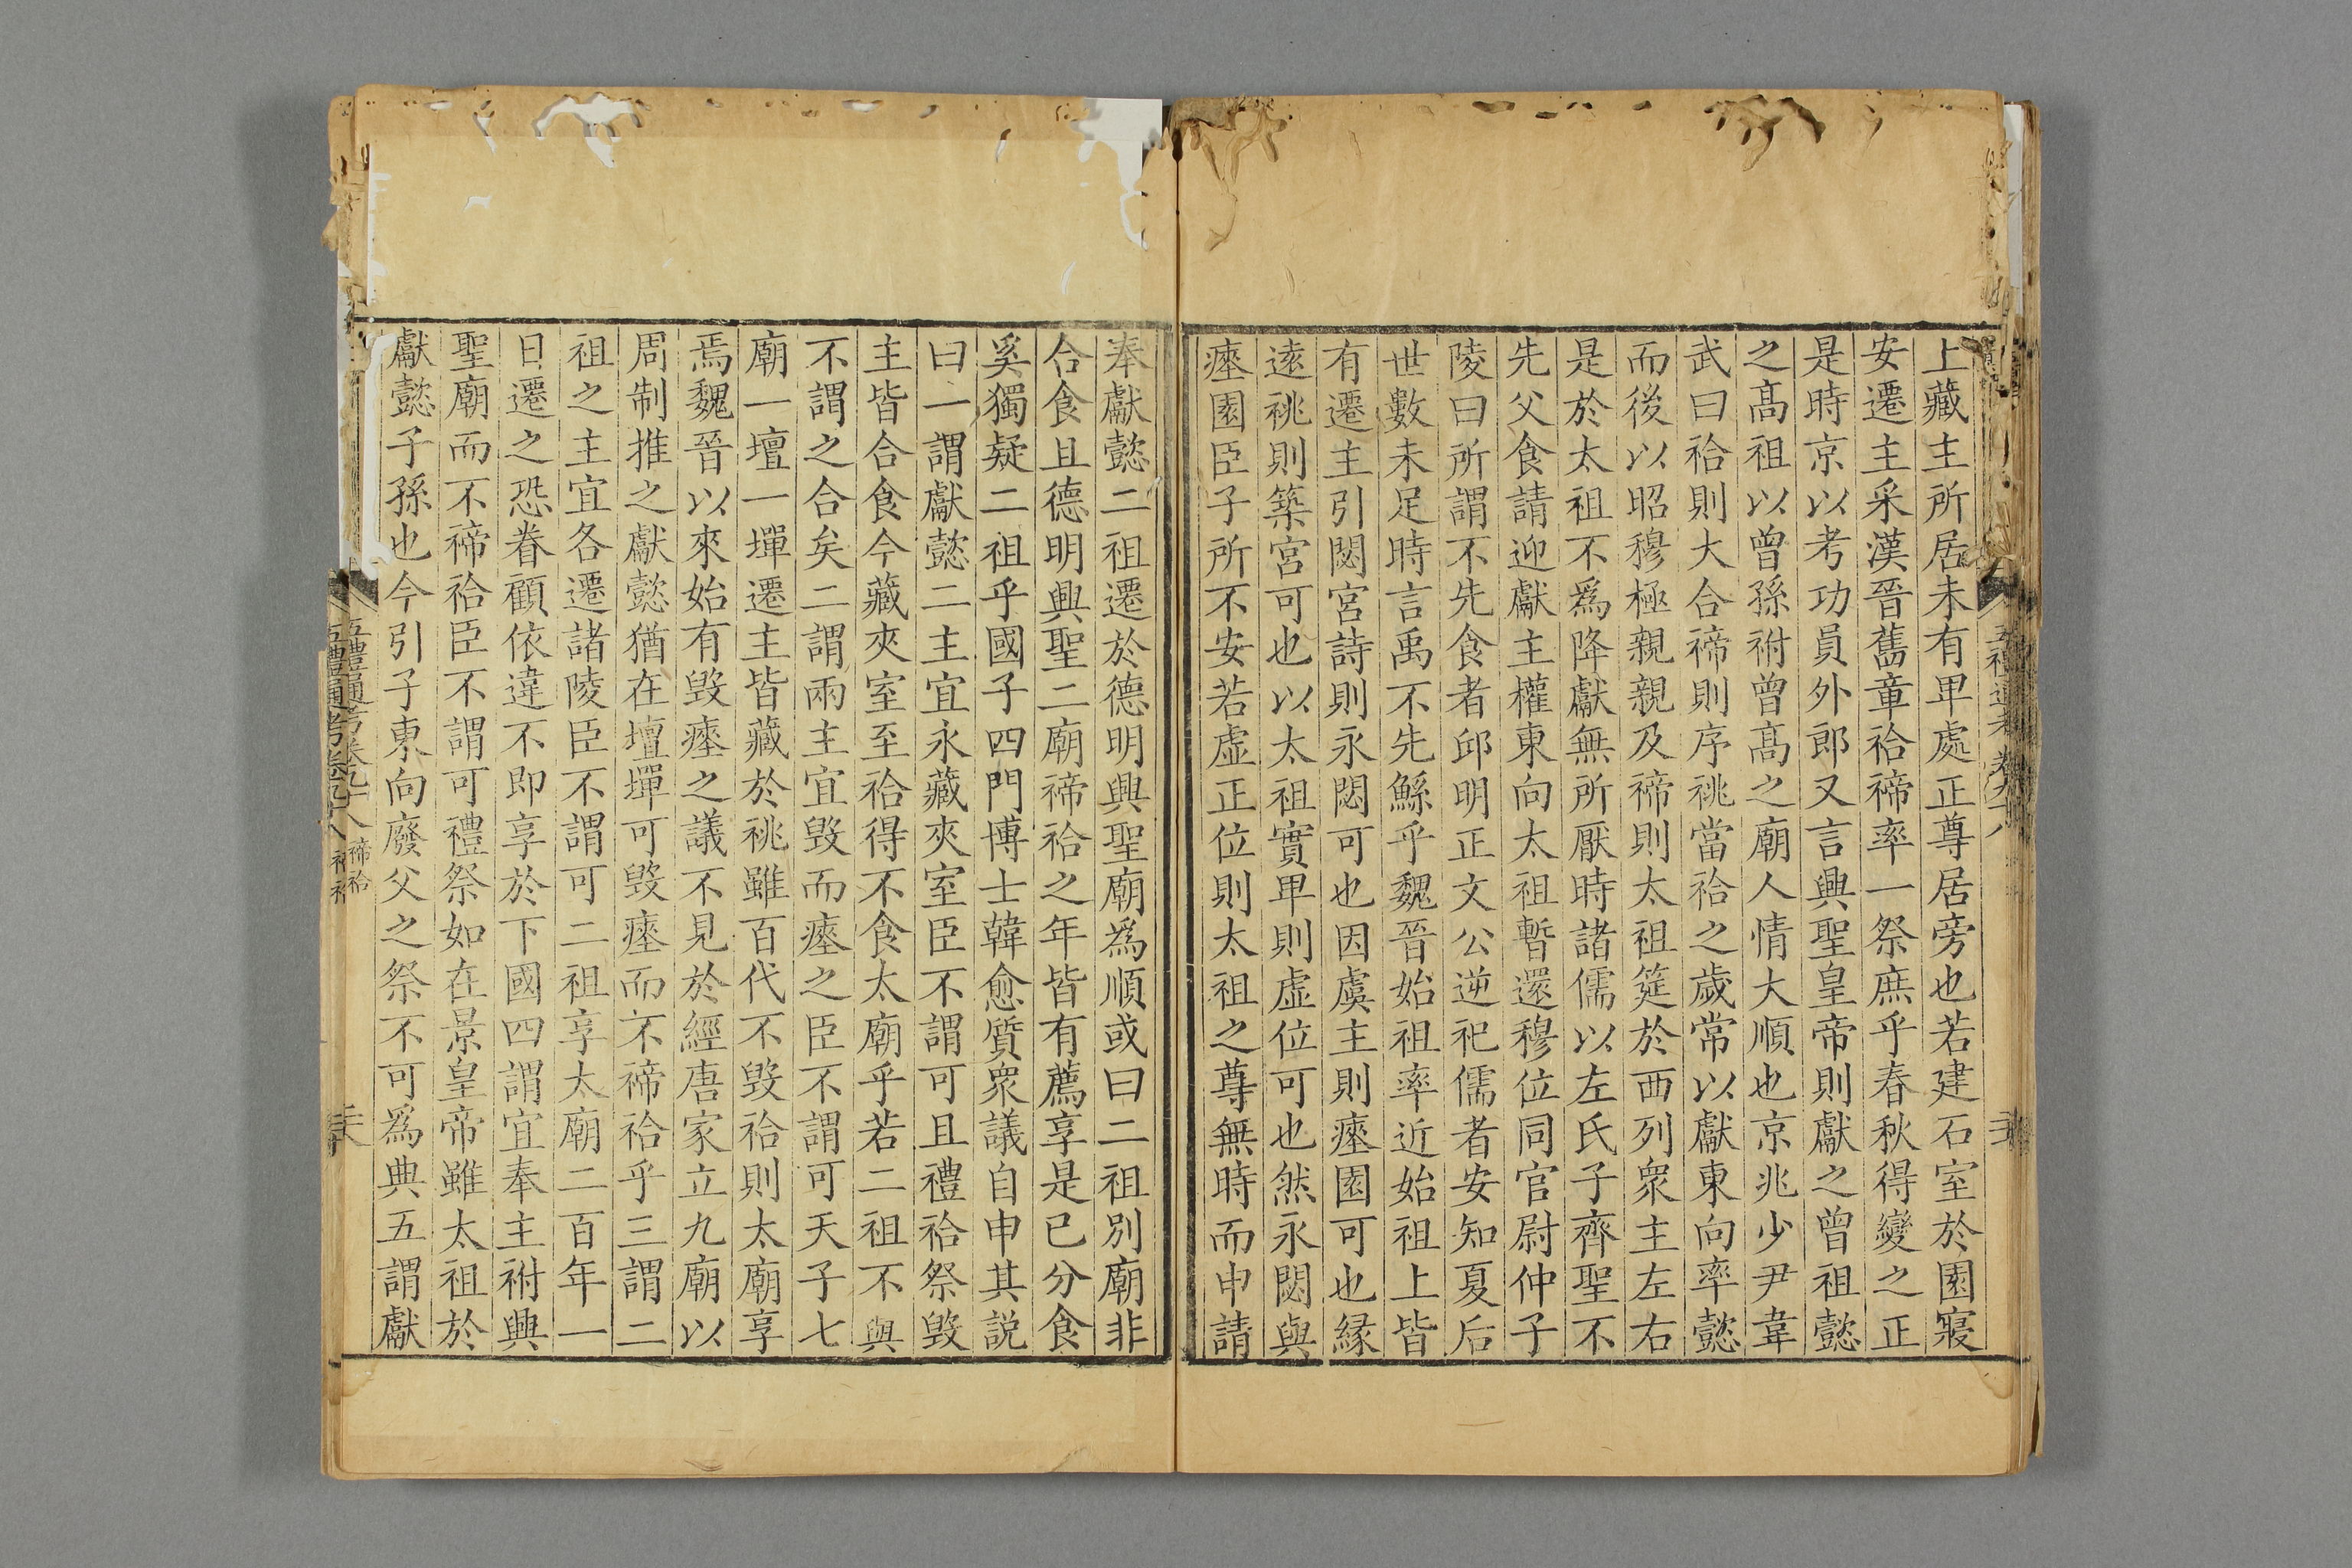 上藏主所居未有卑處正尊居旁也若建石室於園寢
安遷主采漢晉舊章祫禘率一祭庶乎春秋得變之正
是時京以考功員外郎又言興聖皇帝則獻之曾祖懿
之髙祖以曾孫祔曾髙之廟人情大順也京兆少尹韋
武曰祫則大合禘則序祧當祫之歲常以獻東向率懿
而後以昭穆極親親及禘則太祖筵於西列衆主左右
是於太祖不爲降獻無所厭時諸儒以左氏子齊聖不
先父食請迎獻主權東向太祖暫還穆位同官尉仲子
陵曰所謂不先食者邱明正文公逆祀儒者安知夏后
世數未足時言禹不先鯀乎魏晉始祖率近始祖上皆
有遷主引閟宮詩則永閟可也因虞主則瘞園可也縁
遠祧則築宮可也以太祖實卑則虛位可也然永閟與
瘞園臣子所不安若虛正位則太祖之尊無時而申請
奉獻懿二祖遷於德明興聖廟為順或曰二祖別廟非
合食且德明興聖二廟禘祫之年皆有薦享是已分食
奚獨疑二祖乎國子四門博士韓愈質衆議自申其説
曰一謂獻懿二主宜永藏夾室臣不謂可且禮祫祭毀
主皆合食今藏夾室至祫得不食太廟乎若二祖不與
不謂之合矣二謂兩主宜毀而瘞之臣不謂可天子七
廟一壇一墠遷主皆藏於祧雖百代不毀祫則太廟享
焉魏晉以來始有毀瘞之議不見於經唐家立九廟以
周制推之獻懿猶在壇墠可毀瘞而不禘祫乎三謂二
祖之主宜各遷諸陵臣不謂可二祖享太廟二百年一
日遷之恐眷顧依違不即享於下國四謂宜奉主祔興
聖廟而不禘祫臣不謂可禮祭如在景皇帝雖太祖於
獻懿子孫也今引子東向廢父之祭不可爲典五謂獻
五禮通考卷九十八 禘祫